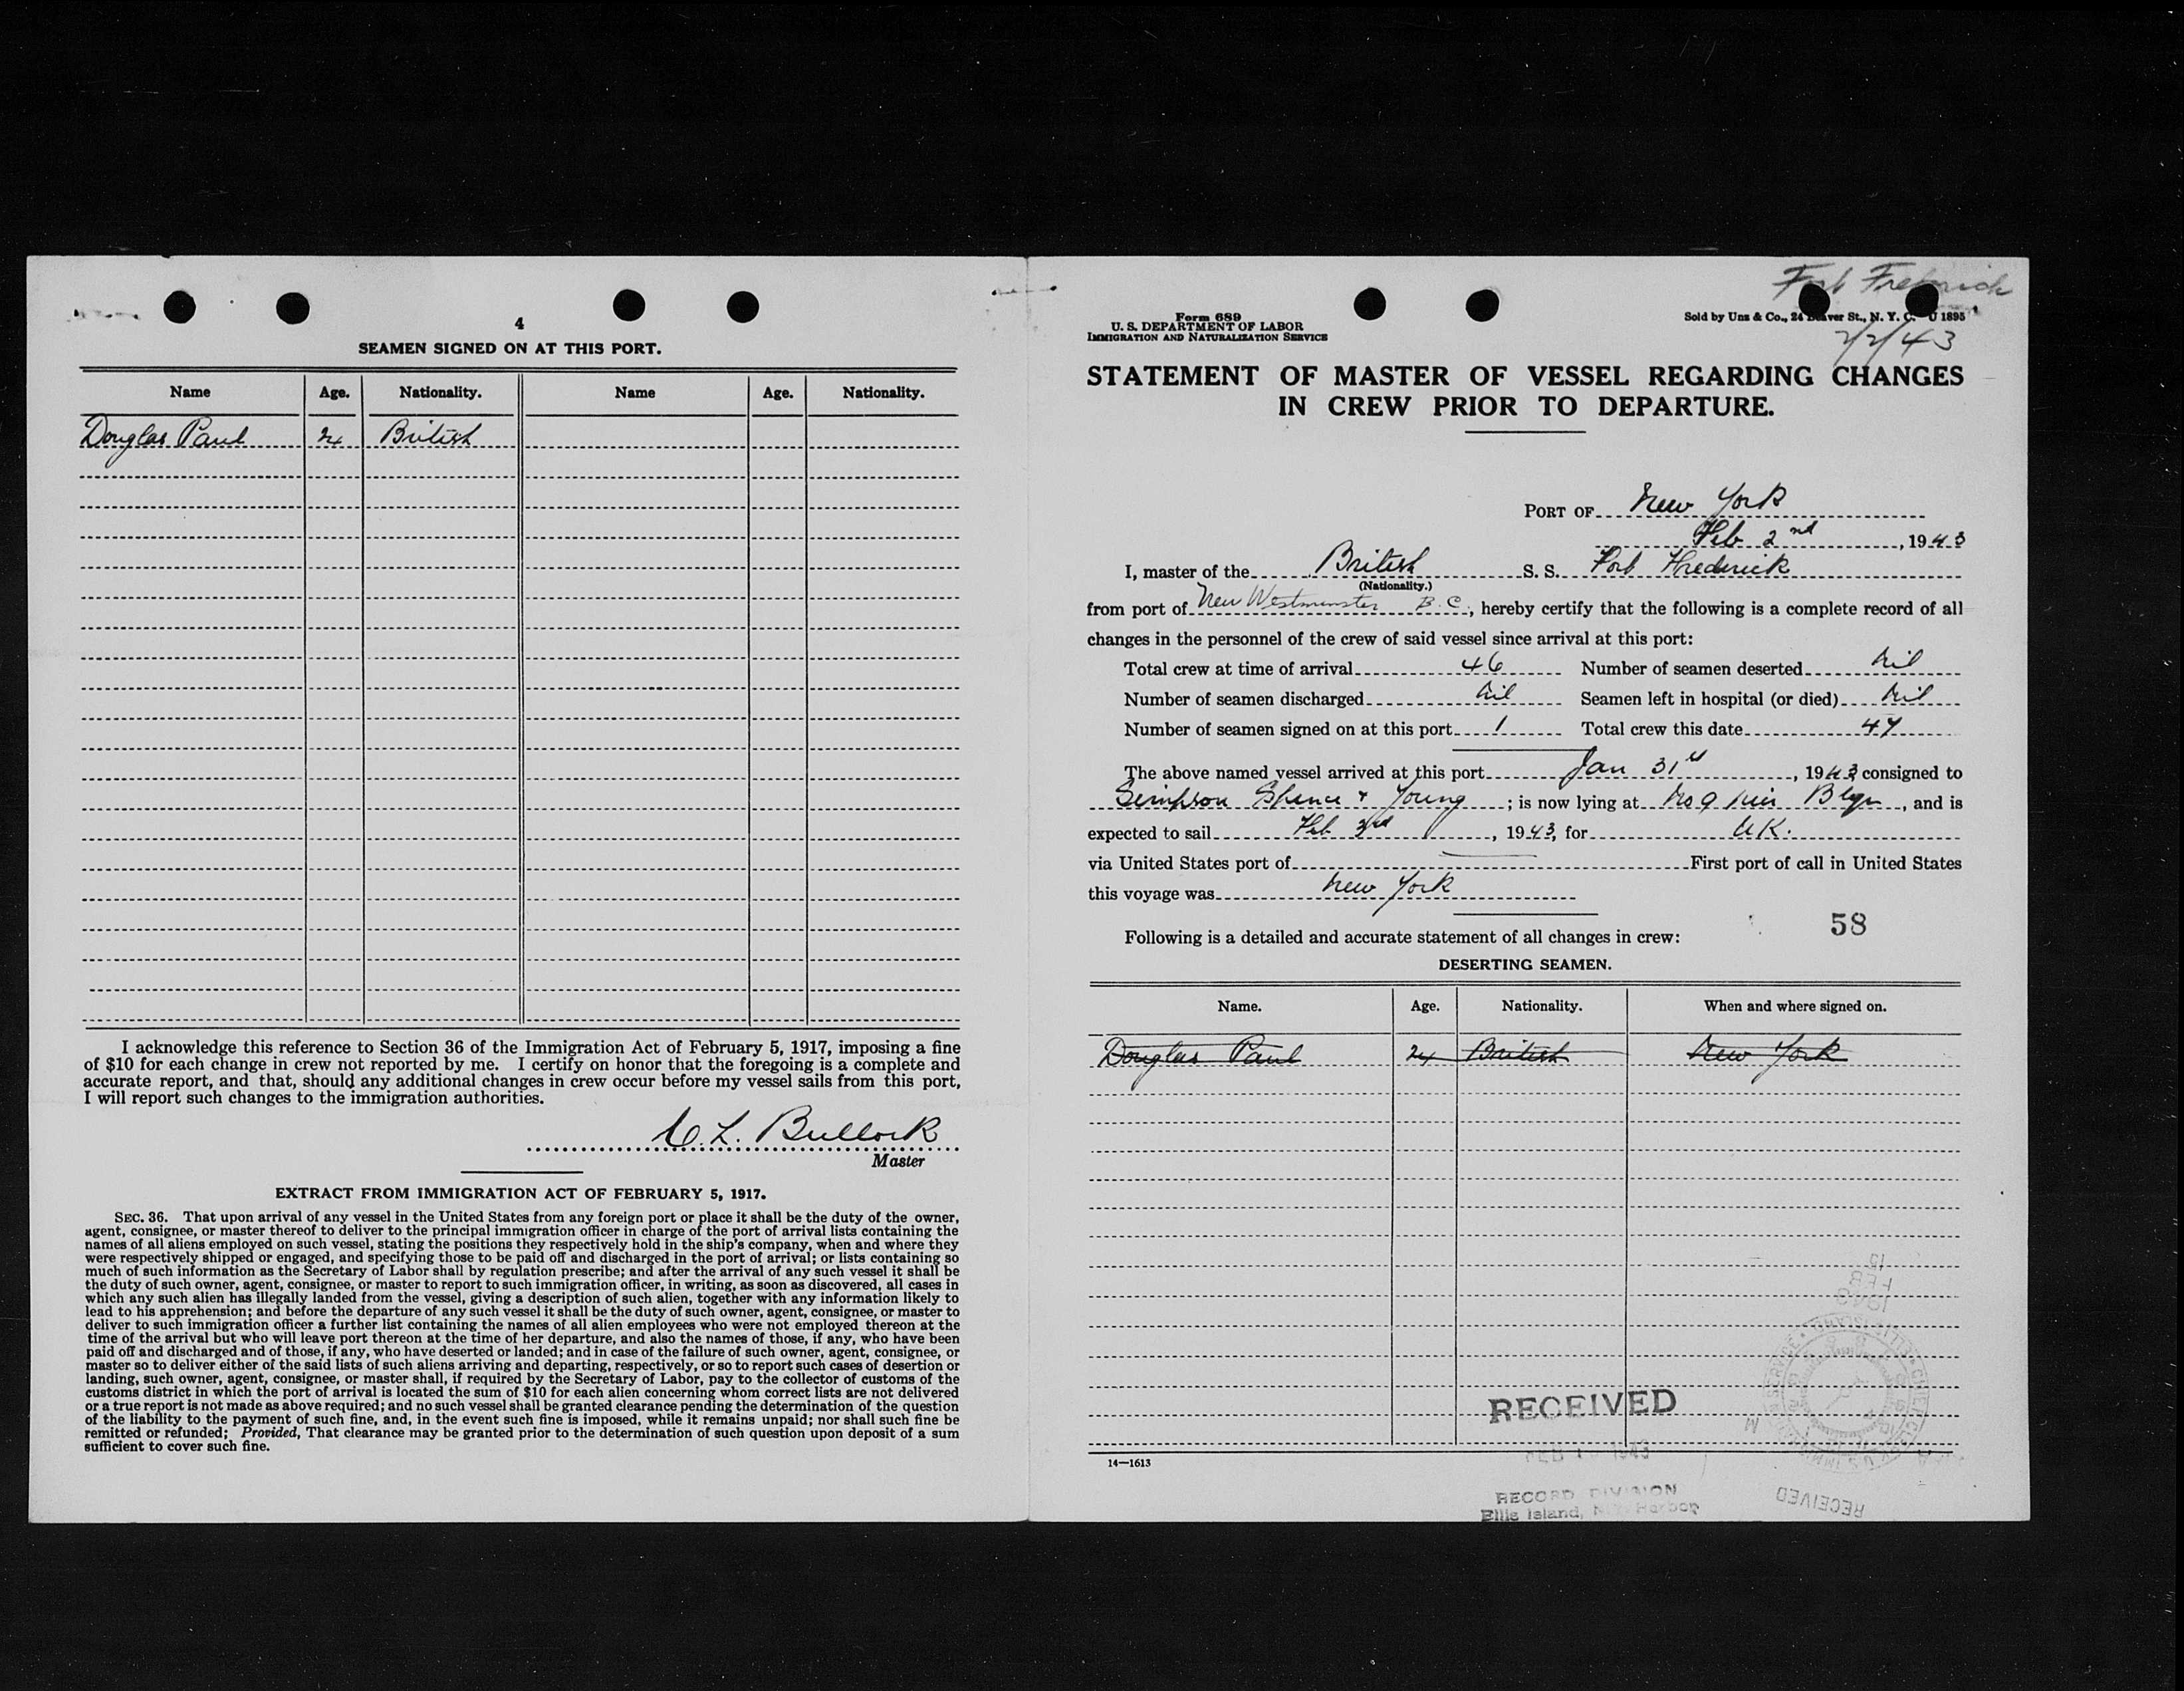 4
SEAMEN SIGNED ON AT THIS PORT.
Name Age. Nationality. Name Age. Nationality.
Douglas Paul 24 British
I acknowledge this reference to Section 36 of the Immigration Act of February 5, 1917, imposing a fine
of $10 for each change in crew not reported by me. I certify on honor that the foregoing is a complete and
accurate report, and that, should any additional changes in crew occur before my vessel sails from this port,
I will report such changes to the immigration authorities.
C. L. Bullock
Master
EXTRACT FROM IMMIGRATION ACT OF FEBRUARY 5, 1917.
SEC. 36. That upon arrival of any vessel in the United States from any foreign port or place it shall be the duty of the owner,
agent, consignee, or master thereof to deliver to the principal immigration officer in charge of the port of arrival lists containing the
names of all aliens employed on such vessel, stating the positions they respectively hold in the ship's company, when and where they
were respectively shipped or engaged, and specifying those to be paid off and discharged in the port of arrival; or lists containing so
much of such information as the Secretary of Labor shall by regulation prescribe; and after the arrival of any such vessel it shall be
the duty of such owner, agent, consignee, or master to report to such immigration officer, in writing, as soon as discovered, all cases in
which any such alien has illegally landed from the vessel, giving a description of such alien, together with any information likely to
lead to his apprehension; and before the departure of any such vessel it shall be the duty of such owner, agent, consignee, or master to
deliver to such immigration officer a further list containing the names of all alien employees who were not employed thereon at the
time of the arrival but who will leave port thereon at the time of her departure, and also the names of those, if any, who have been
paid off and discharged and of those, if any, who have deserted or landed; and in case of the failure of such owner, agent, consignee, or
master so to deliver either of the said lists of such aliens arriving and departing, respectively, or so to report such cases of desertion or
landing, such owner, agent, consignee, or master shall, if required by the Secretary of Labor, pay to the collector of customs of the
customs district in which the port of arrival is located the sum of $10 for each alien concerning whom correct lists are not delivered
or a true report is not made as above required; and no such vessel shall be granted clearance pending the determination of the question
of the liability to the payment of such fine, and, in the event such fine is imposed, while it remains unpaid; nor shall such fine be
remitted or refunded; Provided, That clearance may be granted prior to the determination of such question upon deposit of a sum
sufficient to cover such fine.
Form 689
U. S. DEPARTMENT OF LABOR
IMMIGRATION AND NATURALIZATION SERVICE
Sold by Unz & Co., 24 Beaver St., N. Y. C. U 1895
2/2/43
STATEMENT OF MASTER OF VESSEL REGARDING CHANGES
IN CREW PRIOR TO DEPARTURE.
PORT OF New York
Feb 2nd, 1943
I, master of the British S. S. Port Frederick
(Nationality.)
from port of New Westminster B. C., hereby certify that the following is a complete record of all
changes in the personnel of the crew of said vessel since arrival at this port:
Total crew at time of arrival 46 Number of seamen deserted Nil
Number of seamen discharged Nil Seamen left in hospital (or died) Nil
Number of seamen signed on at this port 1 Total crew this date 47
The above named vessel arrived at this port Jan 31st, 1943 consigned to
Simpson Spence & Young; is now lying at No 9 Pier Bkyn, and is
expected to sail Feb 3rd, 1943, for UK.
via United States port of First port of call in United States
this voyage was New York
58
Following is a detailed and accurate statement of all changes in crew:
DESERTING SEAMEN.
Name. Age. Nationality. When and where signed on.
Douglas Paul 24 British New York
15
FEB
1943
RECEIVED
14—1613
RECORD DIVISION
Ellis Island, N. Y. Harbor
RECEIVED